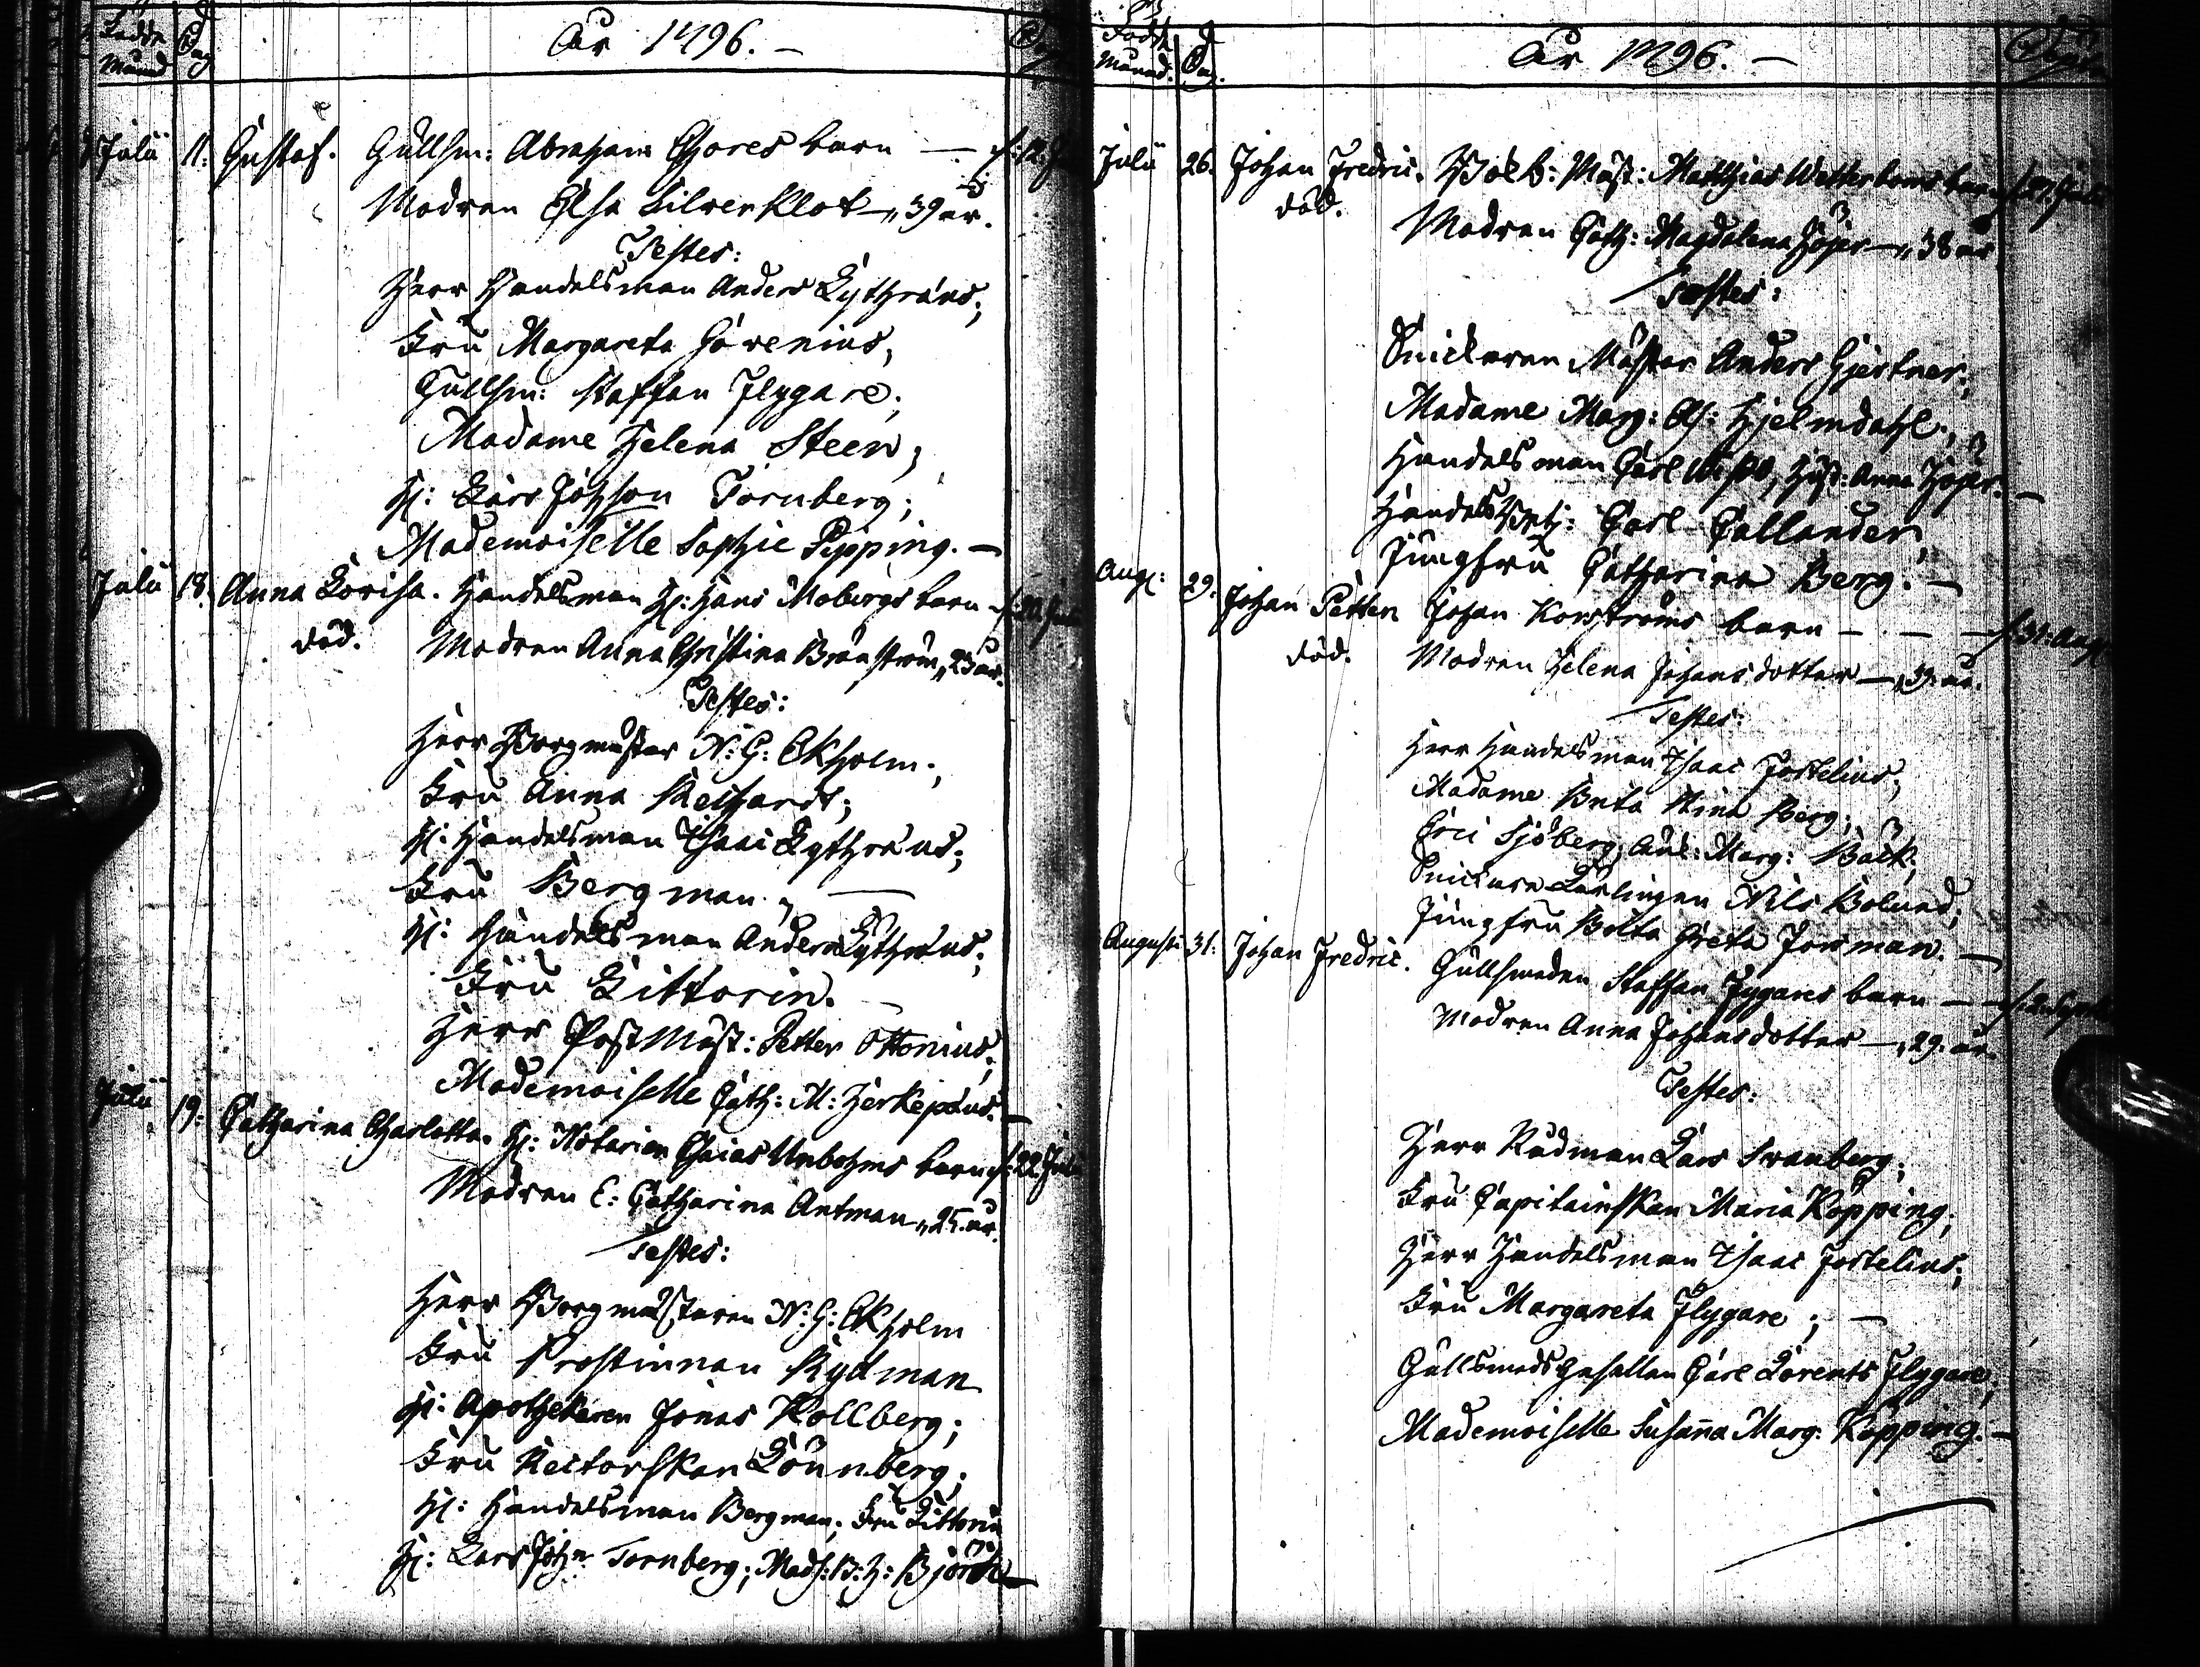 Födde Månad Dag År 1796. — Döpt
Julii 11. Gustaf. Gullsm: Abraham Thores barn — d: 12. J
Modren Elsa Silverklot —„ 39 år.
Testes:
Herr Handelsman Anders Lythræus;
Fru Margareta Govenius,
Gullsm: Staffan Flygare;
Madame Helena Steen;
H: Lars Johsson Tornberg;
Mademoiselle Sophie Pipping. —
Julii 18. Anna Lovisa. Handelsman H: Hans Mobergs barn d: 20. Julii
död. Modren Anna Christina Brånström „ 23 år.
Testes:
Herr Borgmästar N: G: Ekholm;
Fru Anna Reichardt;
H: Handelsman Isaac Lythræus;
Fru Bergman; —
H: Handelsman Anders Lythræus;
Fru Littorin. —
Herr Post Mäst: Petter Ottonius;
Mademoiselle Cath: M: Herkepæus. —
Julii 19: Catharina Charlotta. H: Notarien Esaias Unbohms barn d: 22 Julii
Modren E: Catharina Antman „ 25. år.
Testes:
Herr Borgmästaren N: G: Ekholm
Fru Prostinnan Rydman
H: Apothekaren Jonas Kollberg;
Fru Rectorskan Lönnberg;
H: Handelsman Bergman; Fru Littorin
H: Lars Joh:n Tornberg; Mads: B: H: Björck —
Födde Månad. Dag. År 1796. — Döpte
Julii 26. Johan Fredric. Volt: Mäst: Matthias Wetterboms barn d. 27. Julii
död.
Modren Cath: Magdalena Höjer —„ 38 år
Testes:
Snickaren Mästar Anders Gjertner;
Madame Marg: El: Hjelmdahl;
Handelsman Carl Hust: Anna Höjer. —
Handels Betj: Carl Callander,
Jungfru Catharina Berg. —
Aug: 29. Johan Petter Johan Korströms barn — — d. 31. Aug:
död. Modren Helena Johansdotter —„ 39. år.
Testes:
Herr Handelsman Isaac Fortelius;
Madame Brita Stina Berg;
Eric Sjöberg, Enk: Marg: Bäck;
Snickare Lärlingen Nils Bolund;
Jungfru Brita Greta Forsman. —
Augusti 31. Johan Fredric. Gullsmeden Staffan Flygares barn — d. 2. Sept
Modren Anna Johansdotter —„ 29. år.
Testes:
Herr Rådman Lars Svanberg;
Fru Capitainskan Maria Köpping;
Herr Handelsman Isaac Fortelius;
Fru Margareta Flygare; —
Gullsmeds Gesällen Carl Lorents Flygare,
Mademoiselle Susanna Marg: Köpping. —